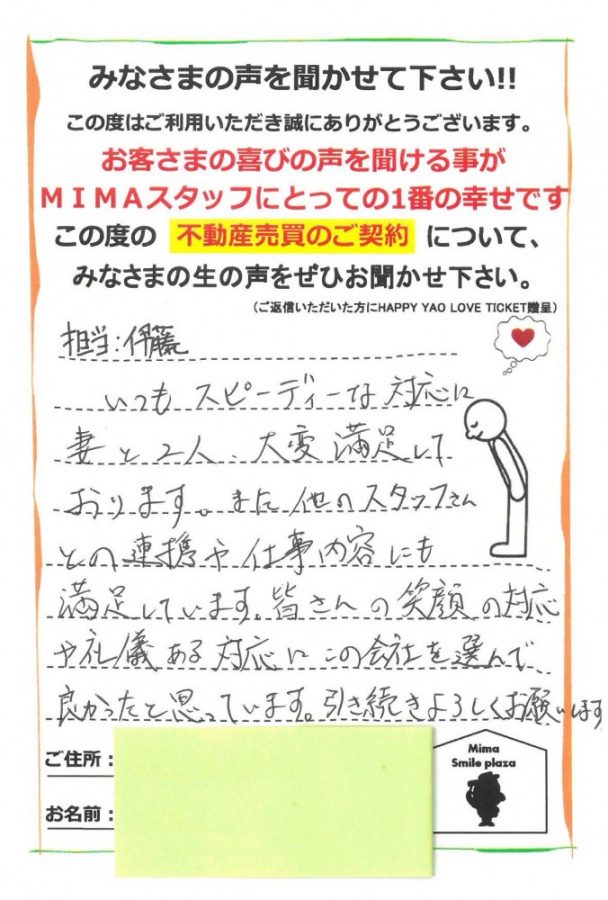 みなさまの声を聞かせて下さい!!
この度はご利用いただき誠にありがとうございます。
お客さまの喜びの声を聞ける事が
MIMAスタッフにとっての1番の幸せです
この度の 不動産売買のご契約 について、
みなさまの生の声をぜひお聞かせ下さい。
(ご返信いただいた方にHAPPY YAO LOVE TICKET贈呈)
担当:伊藤
いつもスピーディーな対応に
妻と2人、大変満足して
おります。また他のスタッフさん
との連携や仕事内容にも
満足しています。皆さんの笑顔の対応
や礼儀ある対応にこの会社を選んで
良かったと思っています。引き続きよろしくお願いします
ご住所:
お名前:
Mima
Smile plaza